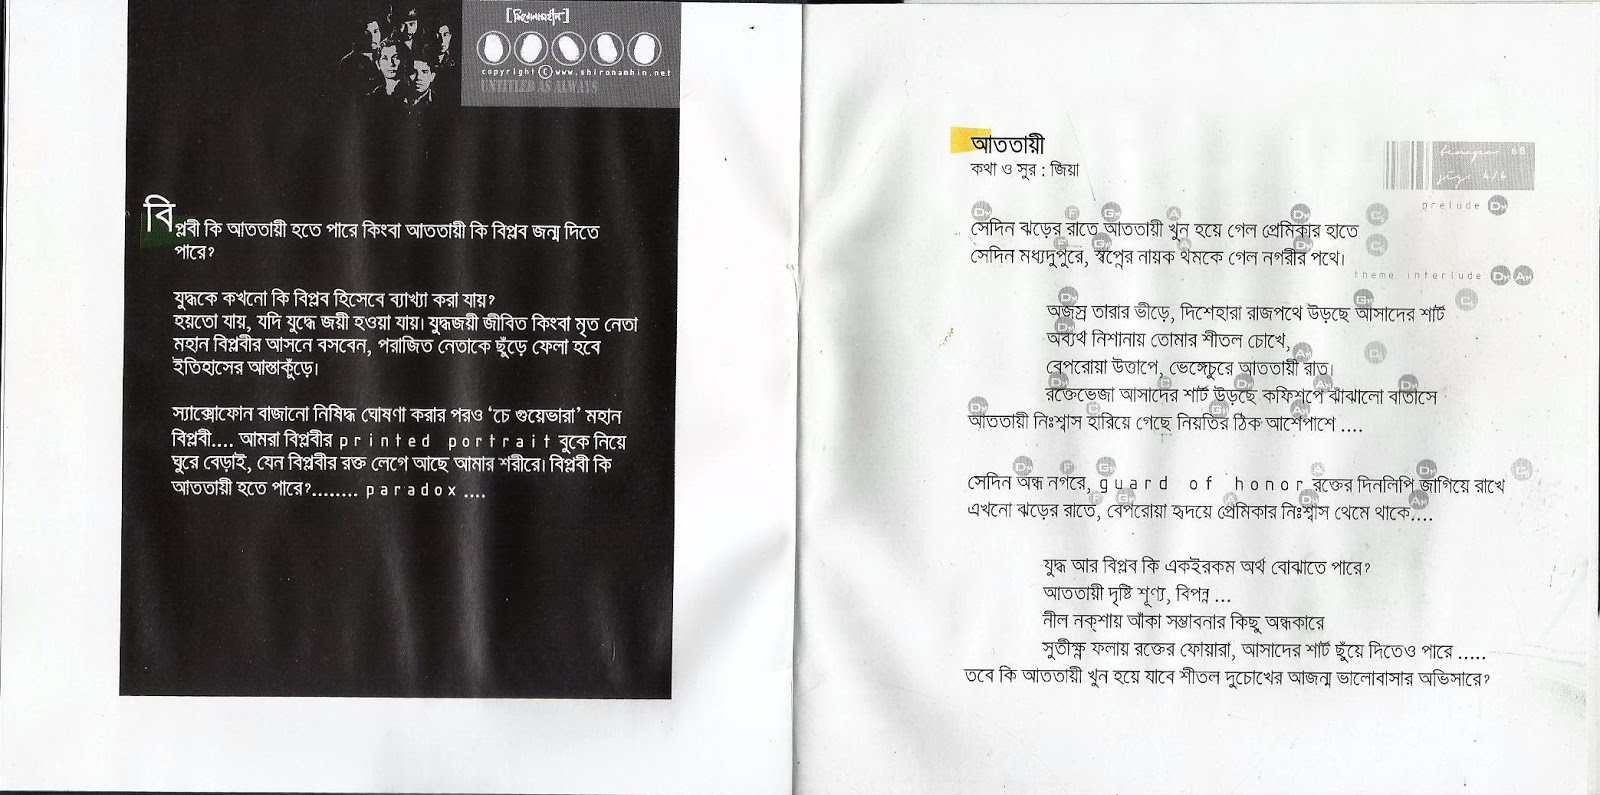 [শিরোনামহীন]
copyright © www.shironamhin.net
UNTITLED AS ALWAYS
বিপ্লবী কি আততায়ী হতে পারে কিংবা আততায়ী কি বিপ্লব জন্ম দিতে
পারে?
যুদ্ধকে কখনো কি বিপ্লব হিসেবে ব্যাখ্যা করা যায়?
হয়তো যায়, যদি যুদ্ধে জয়ী হওয়া যায়। যুদ্ধজয়ী জীবিত কিংবা মৃত নেতা
মহান বিপ্লবীর আসনে বসবেন, পরাজিত নেতাকে ছুঁড়ে ফেলা হবে
ইতিহাসের আস্তাকুঁড়ে।
স্যাক্সোফোন বাজানো নিষিদ্ধ ঘোষণা করার পরও ‘চে গুয়েভারা’ মহান
বিপ্লবী.... আমরা বিপ্লবীর printed portrait বুকে নিয়ে
ঘুরে বেড়াই, যেন বিপ্লবীর রক্ত লেগে আছে আমার শরীরে। বিপ্লবী কি
আততায়ী হতে পারে?........ paradox ....
আততায়ী
কথা ও সুর : জিয়া
tempo 68
4/4
prelude Dm
Dm F Gm A Dm C
সেদিন ঝড়ের রাতে আততায়ী খুন হয়ে গেল প্রেমিকার হাতে
F Gm A Dm C
সেদিন মধ্যদুপুরে, স্বপ্নের নায়ক থমকে গেল নগরীর পথে।
theme interlude Dm Am
Dm Gm C
অজস্র তারার ভীড়ে, দিশেহারা রাজপথে উড়ছে আসাদের শার্ট
Dm
অব্যর্থ নিশানায় তোমার শীতল চোখে,
Am C
বেপরোয়া উত্তাপে, ভেঙ্গেচুরে আততায়ী রাত।
Dm C Dm Am Dm
রক্তেভেজা আসাদের শার্ট উড়ছে কফিশপে ঝাঁঝালো বাতাসে
Dm C Gm Am
আততায়ী নিঃশ্বাস হারিয়ে গেছে নিয়তির ঠিক আশেপাশে ....
Dm F Gm A Dm C
সেদিন অন্ধ নগরে, guard of honor রক্তের দিনলিপি জাগিয়ে রাখে
F Gm A Dm Am
এখনো ঝড়ের রাতে, বেপরোয়া হৃদয়ে প্রেমিকার নিঃশ্বাস থেমে থাকে....
যুদ্ধ আর বিপ্লব কি একইরকম অর্থ বোঝাতে পারে?
আততায়ী দৃষ্টি শূণ্য, বিপন্ন ...
নীল নক্‌শায় আঁকা সম্ভাবনার কিছু অন্ধকারে
সুতীক্ষ্ণ ফলায় রক্তের ফোয়ারা, আসাদের শার্ট ছুঁয়ে দিতেও পারে .....
তবে কি আততায়ী খুন হয়ে যাবে শীতল দুচোখের আজন্ম ভালোবাসার অভিসারে?